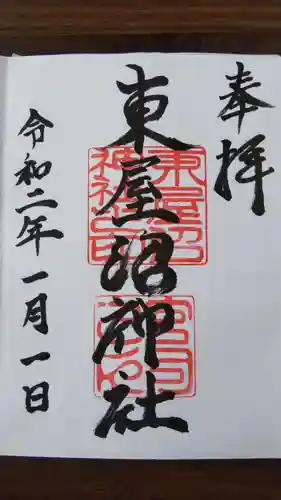 奉拝
東屋沼神社
令和二年一月一日
東屋沼神社之印